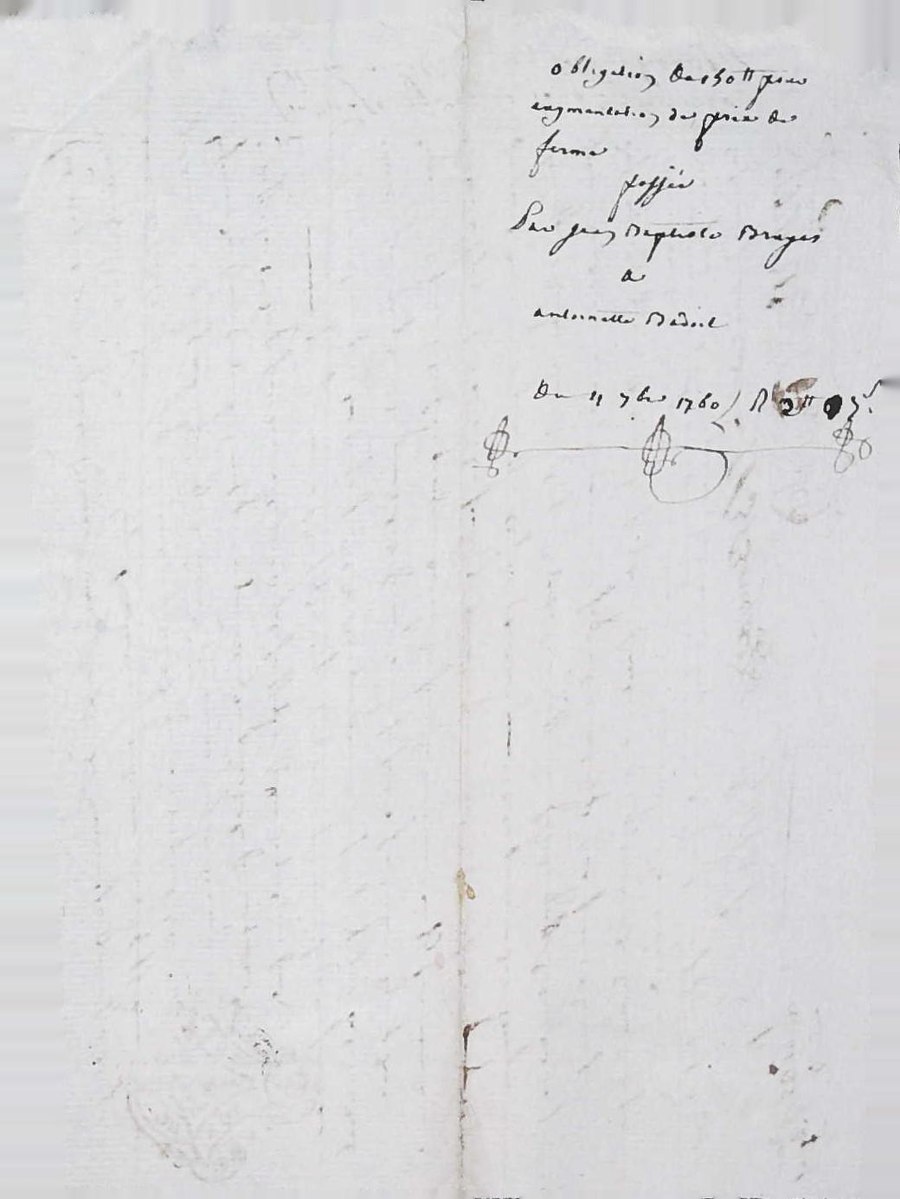 obligation de 150 ₶ pour
augmentation de prix de
ferme
passée
Par jean Baptiste Bruyas
a
antoinette Badoil
Du 11 7bre 1760